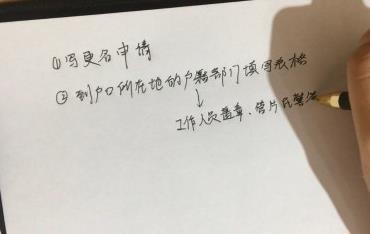 ①写更名申请
②到户口所在地的户籍部门填写表格
↓
工作人员盖章、管片民警签